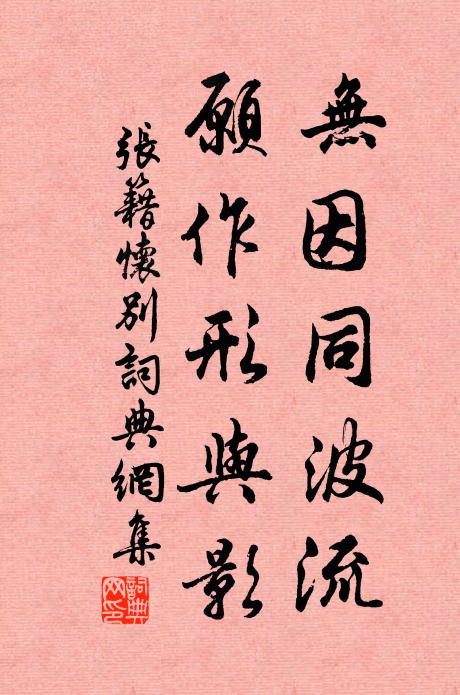 無因同波流
願作形與影
張籍懷別詞典網集
詞典网印